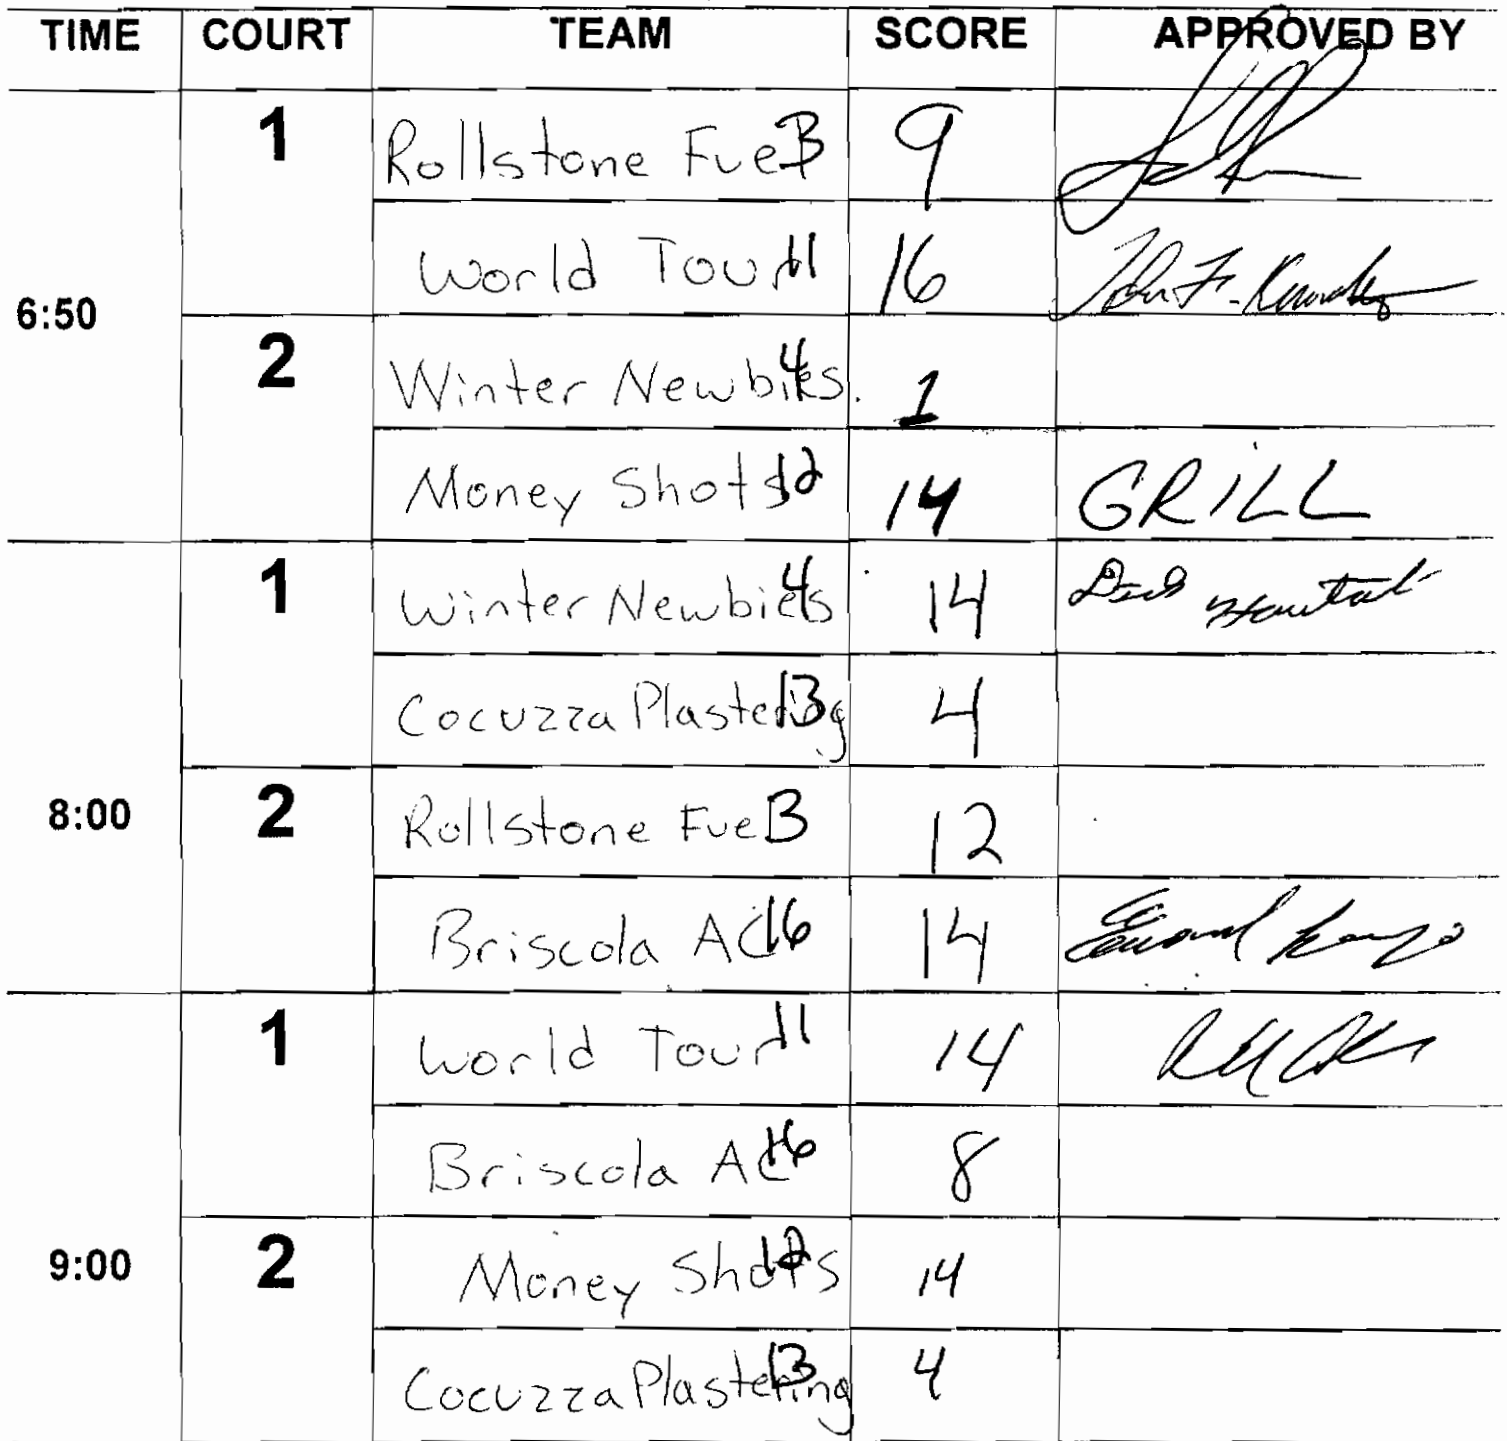 TIME COURT TEAM SCORE APPROVED BY
6:50 1 Rollstone Fuel 3 9
World Tour 11 16 John F. Kennedy
2 Winter Newbies. 4 1
Money Shots 12 14 GRILL
8:00 1 Winter Newbies 4 14
Cocuzza Plastering 13 4
2 Rollstone Fuel 3 12
Briscola AC 16 14
9:00 1 World Tour 11 14
Briscola AC 16 8
2 Money Shots 12 14
Cocuzza Plastering 13 4